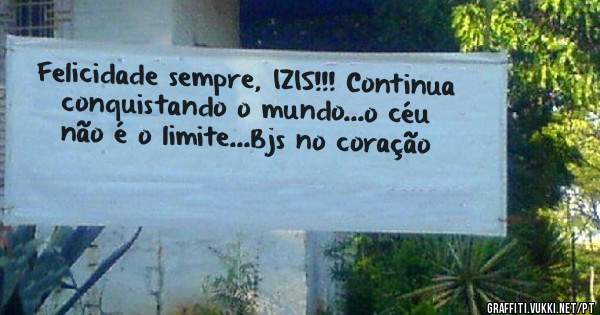 Felicidade sempre, IZIS!!! Continua
conquistando o mundo...o céu
não é o limite...Bjs no coração
GRAFFITI.VUKKI.NET/PT